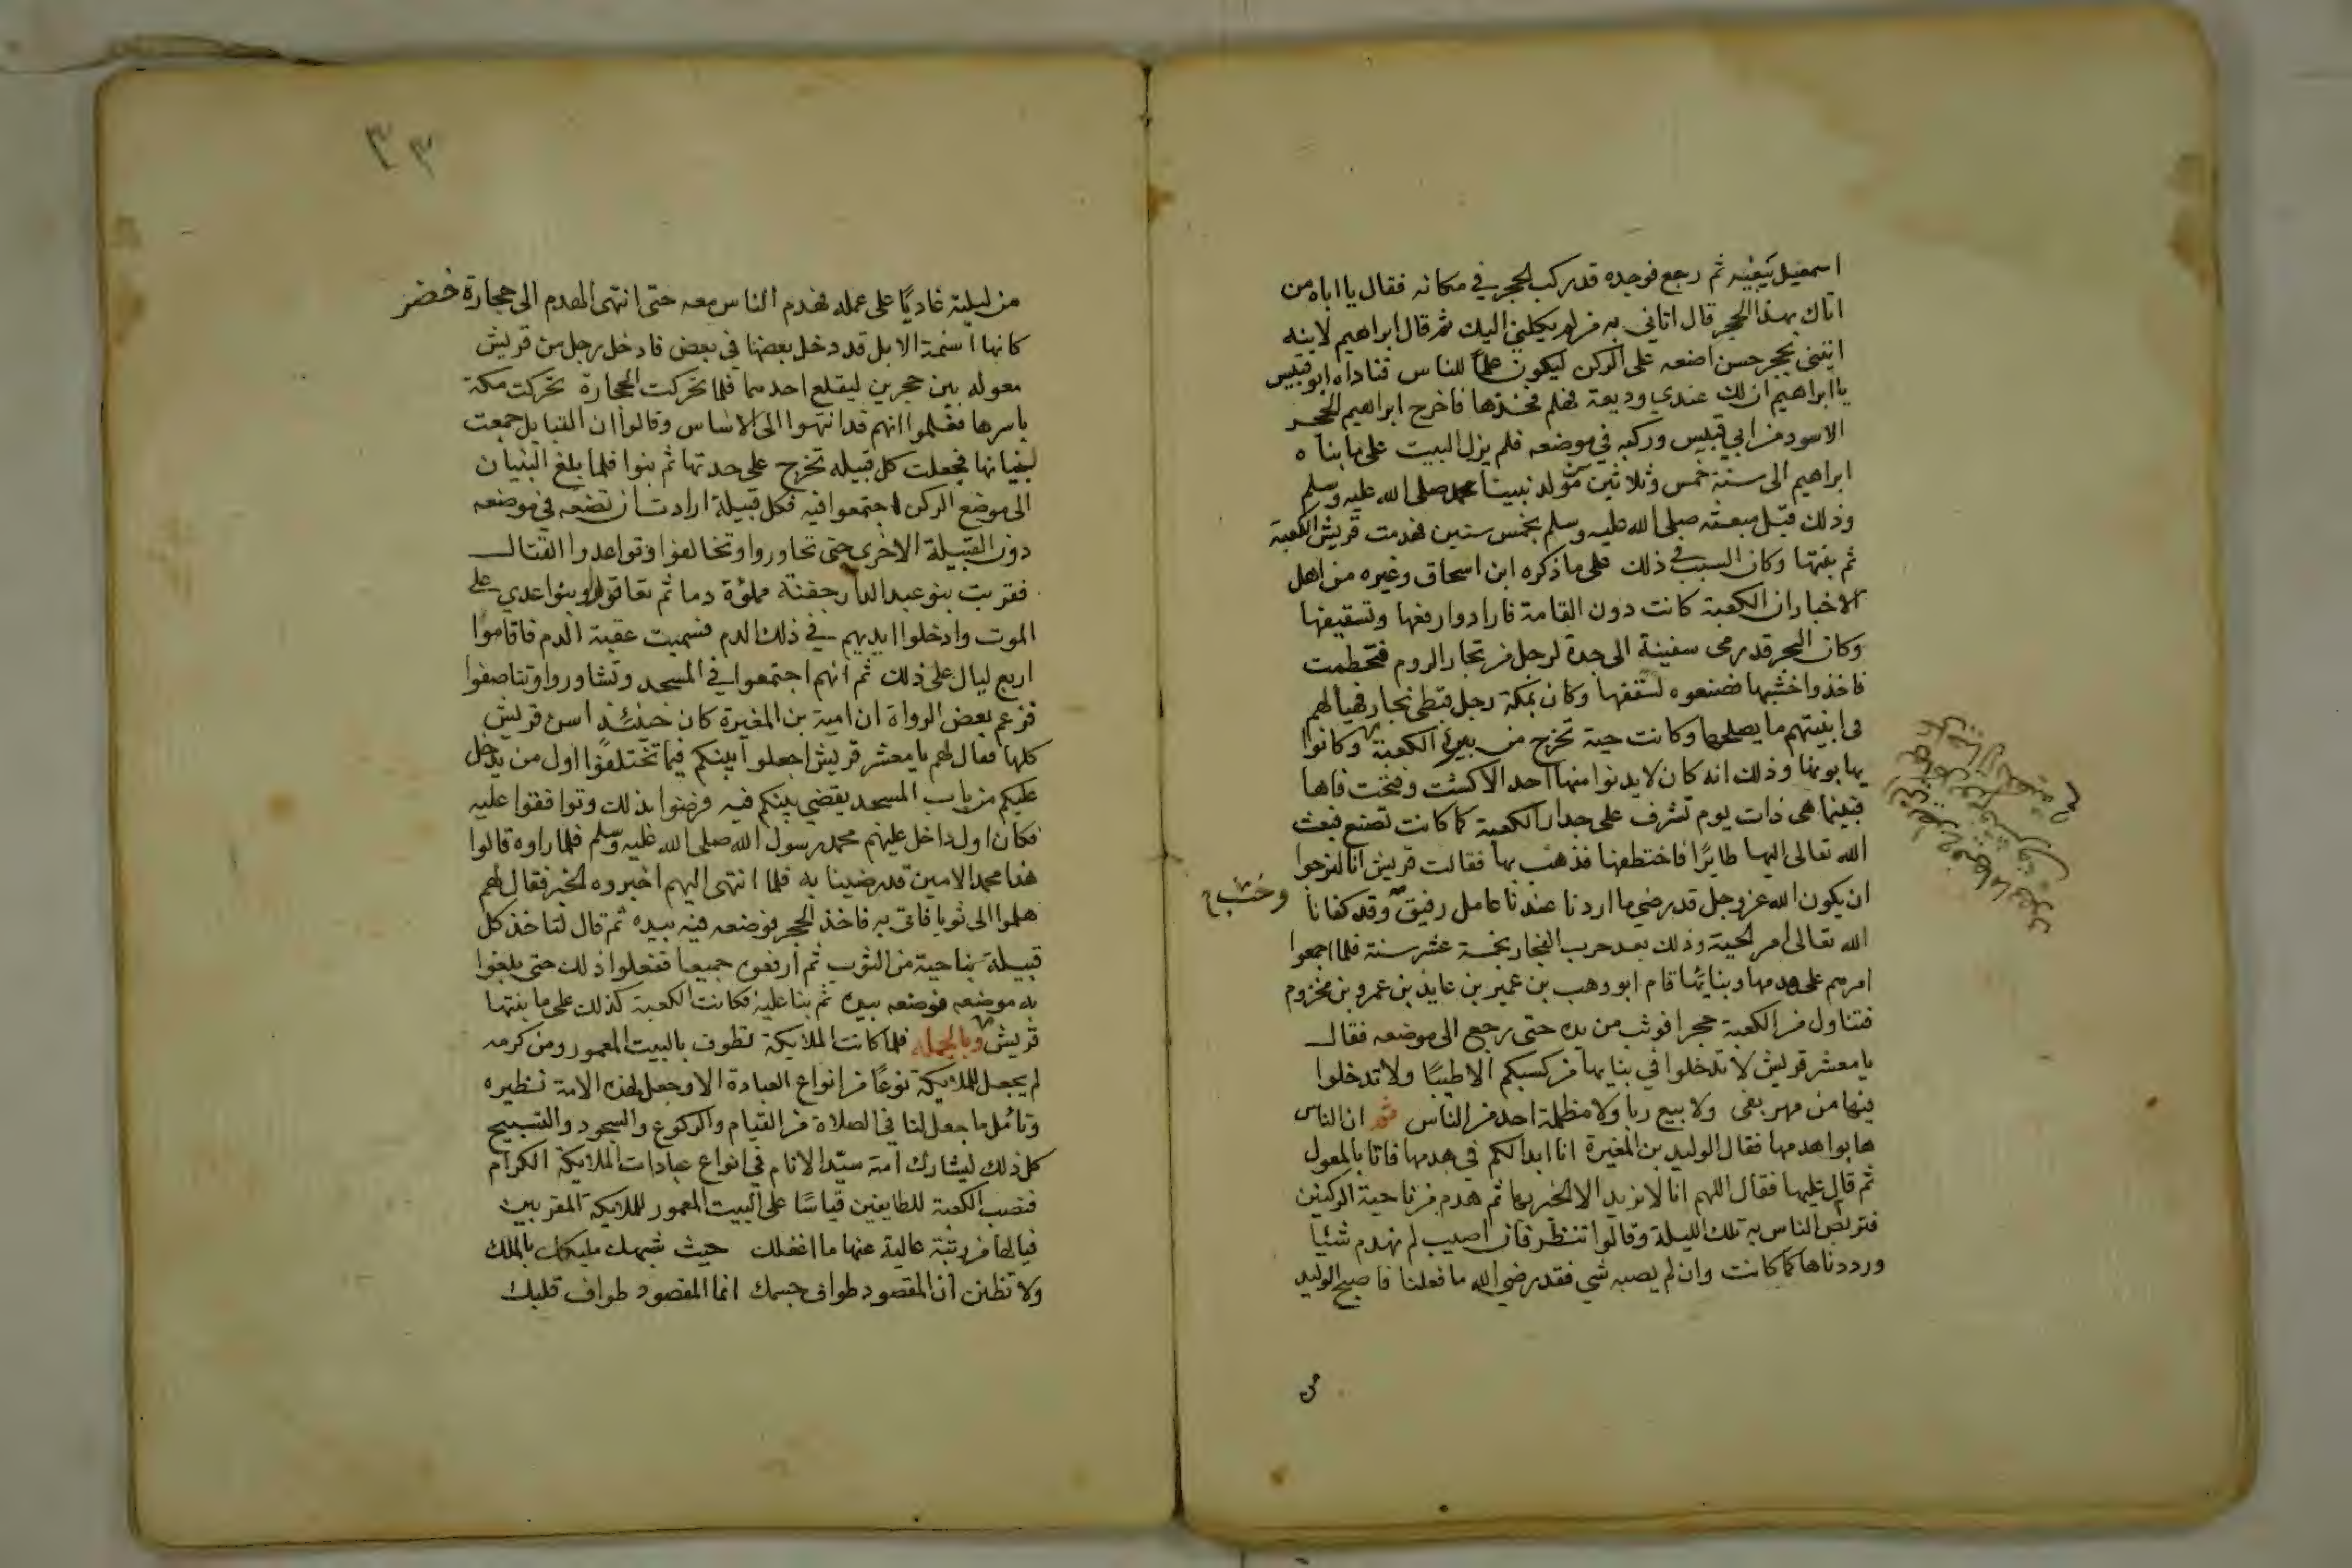 اسمعيل يبغيه ثم رجع فوجده قد ركب الحجر في مكانه فقال يا اباه من
اتاك بهذا الحجر قال اتاني به من لم يكلني اليك ثم قال ابراهيم لابنه
ايتني بحجر حسن اضعه على الركن ليكون علما للناس فناداه ابو قبيس
يا ابراهيم ان لك عندي وديعة فهلم فخذها فاخرج ابراهيم الحجر
الاسود من ابي قبيس وركبه في موضعه فلم يزل البيت على ما بناه
ابراهيم الى سنة خمس وثلاثين من مولد نبينا محمد صلى الله عليه وسلم
وذلك قبل مبعثه صلى الله عليه وسلم بخمس سنين فهدمت قريش الكعبة
ثم بنتها وكان السبب في ذلك على ما ذكره ابن اسحاق وغيره من اهل
الاخبار ان الكعبة كانت دون القامة فارادوا رفعها وتسقيفها
وكان البحر قد رمى سفينة الى جدة لرجل من تجار الروم فتحطمت
فاخذوا خشبها فصنعوه لسقفها وكان بمكة رجل قبطي نجار فهيأ لهم
في ابنيتهم ما يصلحها وكانت حية تخرج من بير الكعبة وكانوا
يهابونها وذلك انه كان لا يدنوا منها احد الا كشت وفتحت فاها
فبينما هى ذات يوم تشرف على جدار الكعبة كما كانت تصنع فبعث
الله تعالى اليها طايرا فاختطفها فذهب بها فقالت قريش انا لنرجوا
ان يكون الله عز وجل قد رضي ما اردنا عندنا عامل رفيق وقد كفانا
وخشب
الله تعالى امر الحية وذلك بعد حرب الفجار بخمسة عشر سنة فلما اجمعوا
امرهم على هدمها وبنائها قام ابو وهب بن عمير بن عايذ بن عمرو بن مخزوم
فتناول من الكعبة حجرا فوثب من يده حتى رجع الى موضعه فقال
يا معشر قريش لا تدخلوا في بنايها من كسبكم الا طيبا ولا تدخلوا
فيها من مهر بغى ولا بيع ربا ولا مظلمة احد من الناس ثم ان الناس
هابوا هدمها فقال الوليد بن المغيرة انا ابدالكم في هدمها فاتا بالمعول
ثم قال عليها فقال اللهم انا لا نريد الا الخير بها ثم هدم من ناحية الركنين
فتربص الناس به تلك الليلة وقالوا ننظر فان اصيب لم نهدم شئيا
ورددناها كما كانت وان لم يصبه شي فقد رضي الله ما فعلنا فاصبح الوليد
من
٣٣
من ليلته غاديا على عمله فهدم الناس معه حتى انتهى الهدم الى حجارة خضر
كانها اسنمة الابل قد دخل بعضها في بعض فادخل رجل من قريش
معوله بين حجرين ليقلع احدهما فلما تحركت الحجارة تحركت مكة
باسرها فعلموا انهم قد انتهوا الى الاساس وقالوا ان القبايل جمعت
لبنيانها فجعلت كل قبيله تخرج على حدتها ثم بنوا فلما بلغ البنيان
الى موضع الركن اجتمعوا فيه فكل قبيلة ارادت ان تضعه في موضعه
دون القبيلة الاخرى حتى تحاوروا وتخالفوا وتواعدوا القتال
فقربت بنو عبد الدار جفنة مملؤة دما ثم تعاقدوا وبنوا عدي على
الموت وادخلوا ايديهم في ذلك الدم فسميت عقبة الدم فاقاموا
اربع ليال على ذلك ثم انهم اجتمعوا في المسجد وتشاوروا وتناصفوا
فزعم بعض الرواة ان امية بن المغيرة كان حينئذ اسن قريش
كلها فقال لهم يا معشر قريش اجعلوا بينكم فيما تختلفوا اول من يدخل
عليكم من باب المسجد يقضي بينكم فيه فرضوا بذلك وتوافقوا عليه
فكان اول داخل عليهم محمد رسول الله صلى الله عليه وسلم فلما راوه قالوا
هذا محمد الامين قد رضينا به فلما انتهى اليهم اخبروه الخبر فقال لهم
هلموا الى ثوبا فاتى به فاخذ الحجر فوضعه فيه بيده ثم قال لتاخذ كل
قبيلة بناحية من الثوب ثم ارفعوه جميعا ففعلوا ذلك حتى بلغوا
به موضعه فوضعه بيده ثم بنا عليه فكانت الكعبة كذلك على ما بنتها
قريش وبالجملة فلما كانت الملايكة تطوف بالبيت المعمور ومن كرمه
لم يجعل للملايكة نوعا من انواع العبادة الا وجعل لهذه الامة نظيره
وتامل ما جعل لنا في الصلاة من القيام والركوع والسجود والتسبيح
كل ذلك ليشارك امة سيد الانام في انواع عبادات الملايكة الكرام
فنصب الكعبة للطايفين قياسا على البيت المعمور للملايكة المقربين
فيالها من رتبة عالية عنها ما اغفلك حيث شبهك مليكك بالملك
ولا تظنن ان المقصود طواف جسمك انما المقصود طواف قلبك